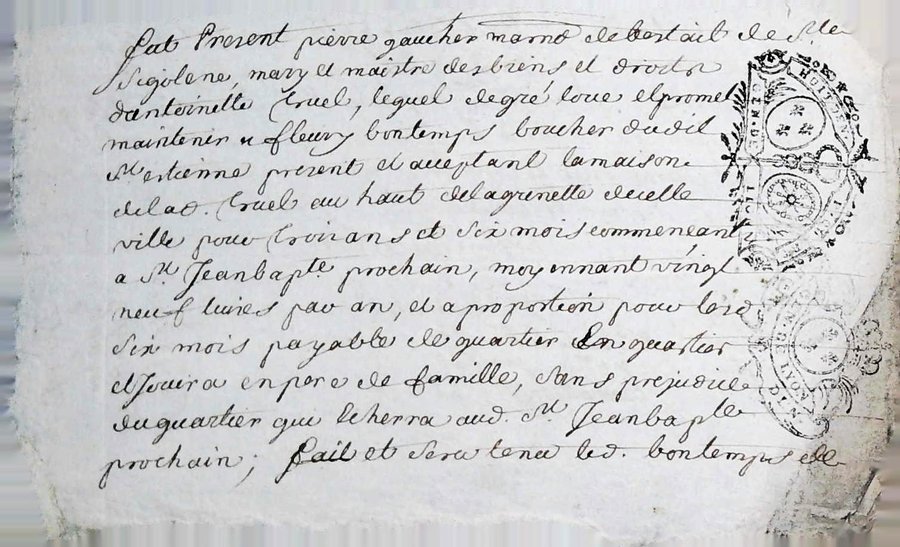 fut Present pierre gaucher marnd de bestail de Ste
Sigolene, mary et maistre des biens et droits
dantoinette Cruel, lequel de gré loue et promet
maintenir a fleury bontemps boucher dudit
St estienne present et acceptant la maison
de lad. Cruel au haut de la grenette de cette
ville pour trois ans et six mois commencant
a St Jeanbapte prochain, moyennant vingt
neuf livres par an, et a proportion pour lesd
six mois payable de quartier En quartier
et Jouira en pere de famille, sans prejudice
du quartier qui echerra aud. St Jeanbapte
prochain; fait et sera tenu led. bontemps de